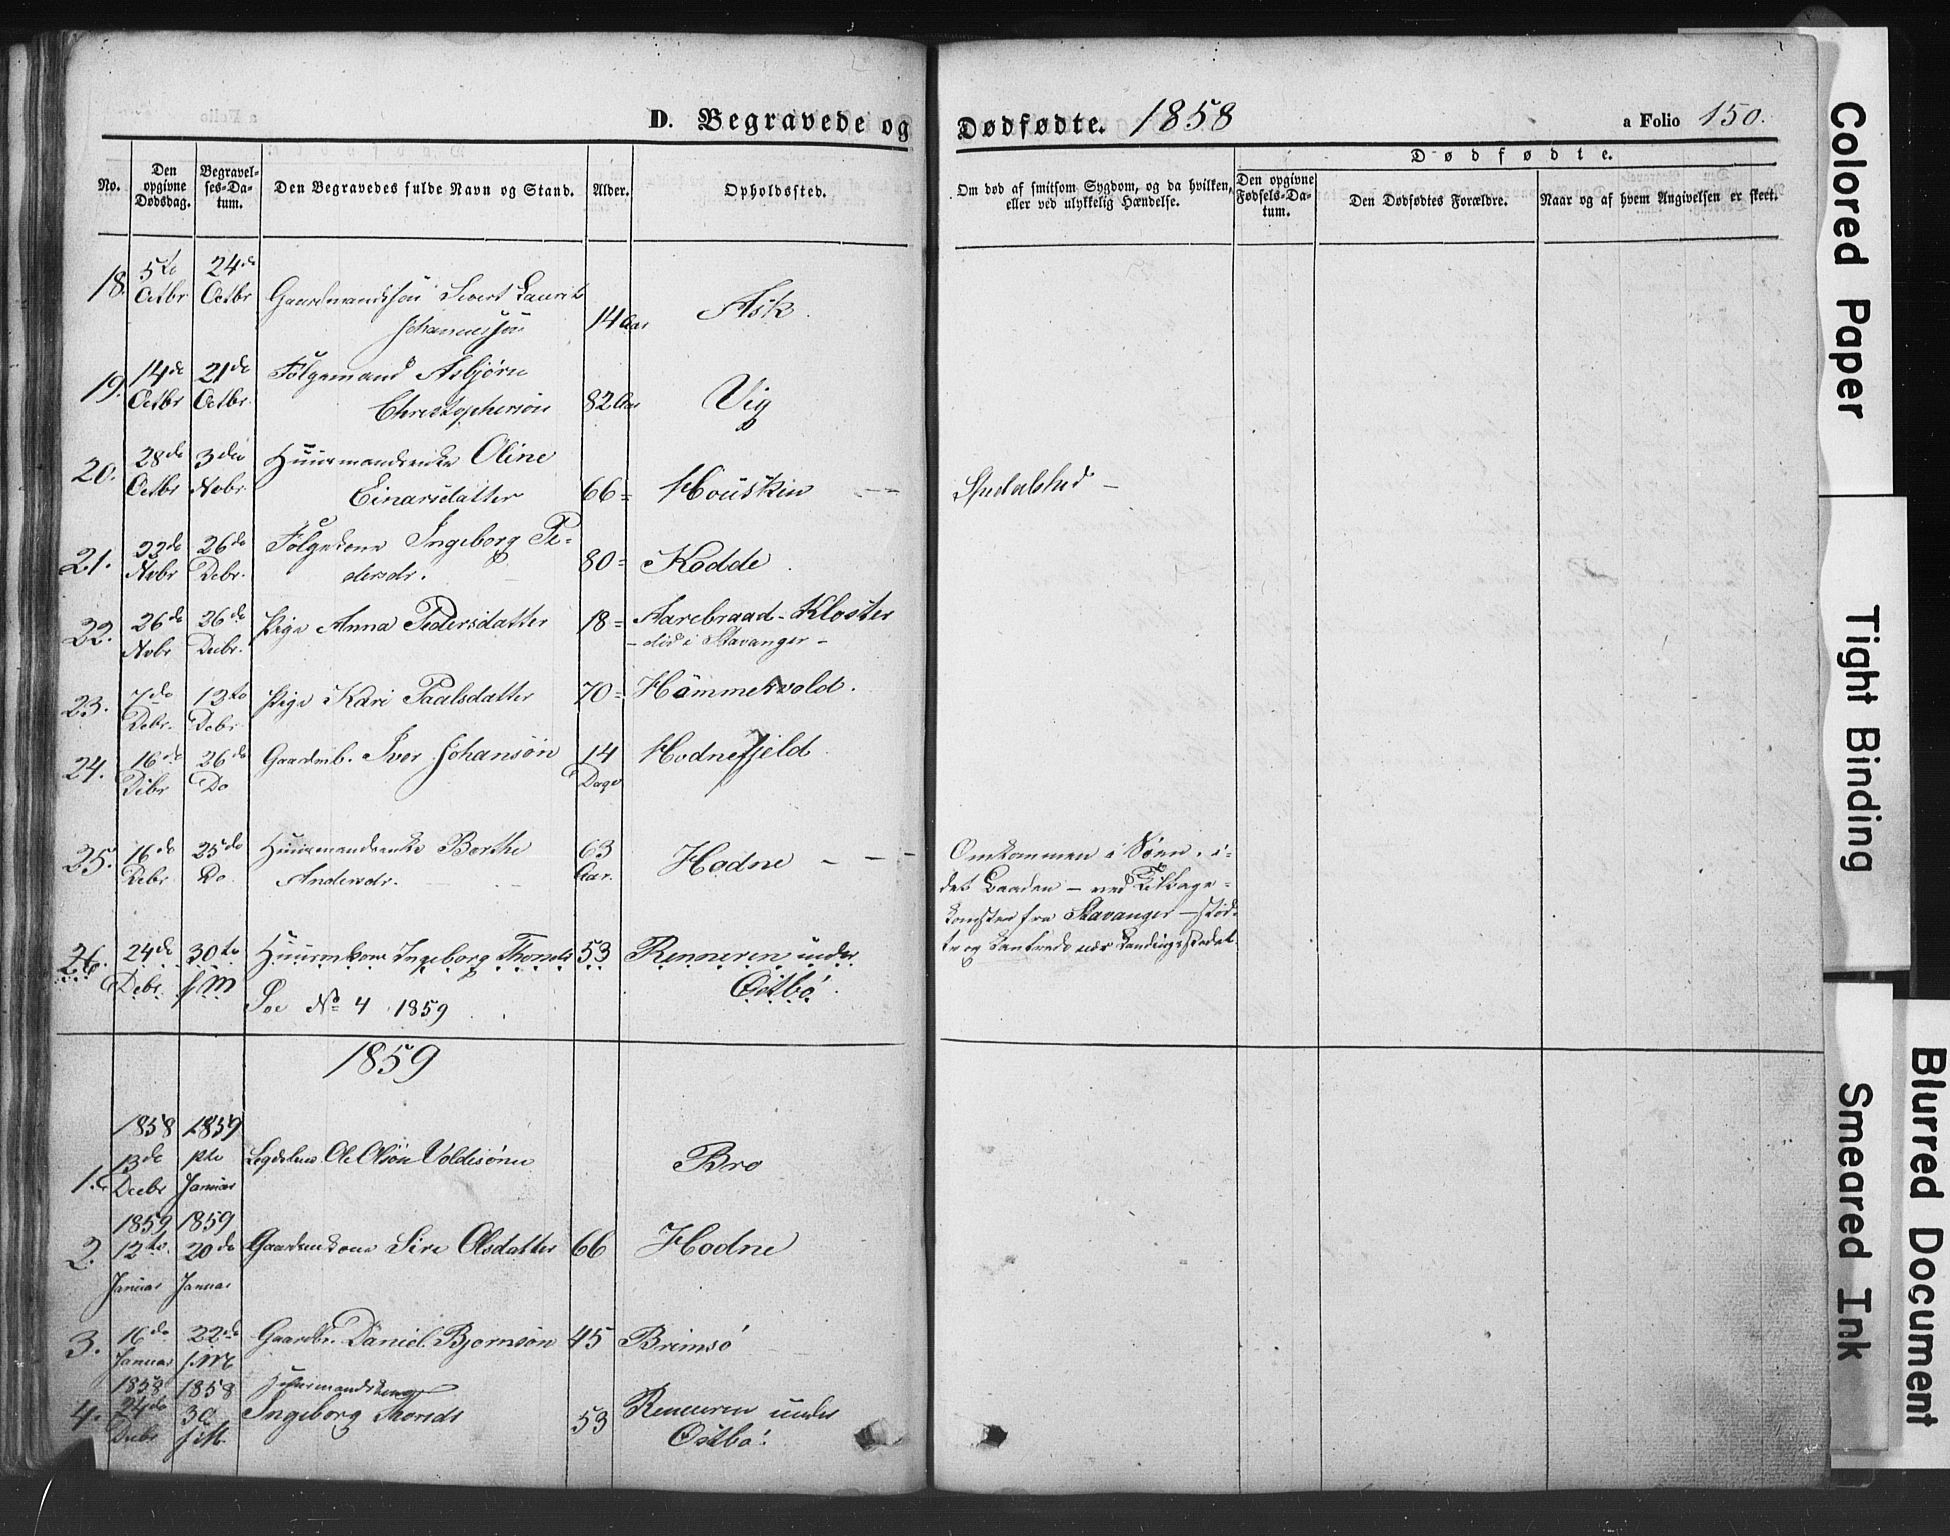 D. Begravede og Dødfødte. 1858
a Folio 150.
No.
Den opgivne Dødsdag.
Begravelses-Datum.
Den Begravedes fulde Navn og Stand.
Alder.
Opholdssted.
Om død af smitsom Sygdom, og da hvilken, eller ved ulykkelig Hændelse.
Dødfødte.
Den opgivne Fødsels-Datum.
Den Dødfødtes Forældre.
Naar og af hvem Angivelsen er skeet.
18. 5te Octbr 24de Octbr Gaardmandssøn Sivert Laurits
Johannessøn 14 Aar Ask.
19. 14de Octbr 21de Octbr Følgemand Asbjørn
Christophersøn 82 Aar Vig
20. 28de Octbr 3die Novbr Huusmandsenke Oline
Einarsdatter 66 = Housken - - Spedalskhed -
21. 22de Novbr 26de Debr. Følgekone Ingeborg Pe-
dersdr. 80 = Kodde
22. 26de Novbr 26de Decbr. Pige Anna Pedersdatter 18 = Aarebraad-Kloster
- død i Stavanger -
23. 7de Debr. 13te Debr Pige Kari Paalsdatter 70 = Hammersvold.
24. 16de Debr 26de Do Gaardmb. Iver Johansøn 14 Dage Hodnefjeld
25. 16de Debr 25de Do Huusmandsenke Berthe
Andersdr. 63 Aar. Hodne - - -
Omkommen i Søen, i-
det Baaden - ved Tilbage-
komsten fra Stavanger - stød-
te og kantrede nær Landingsstedet.
26. 24de Debr. 30te f. M Huusmkone Ingeborg Thorsdr 53 Renneren under
Østbø.
See No 4 1859
1859
1. 1858 13de Decbr 1859 Januar Ole Olsøn Voldesønn Bro
2. 1859 12te Januar 1859 20de Januar Gaardmkone Siri Olsdatter 66 Hodne
3. 16de Januar 22de f. M Gaardbr. Daniel Bjørnsøn 45 Brimsø
4. 1858 24de Decbr 1858 30 f. M. Huusmandskone
Ingeborg Thorsdr 53 Renneren under
Østbø.
Colored Paper
Tight Binding
Blurred Document
Smeared Ink